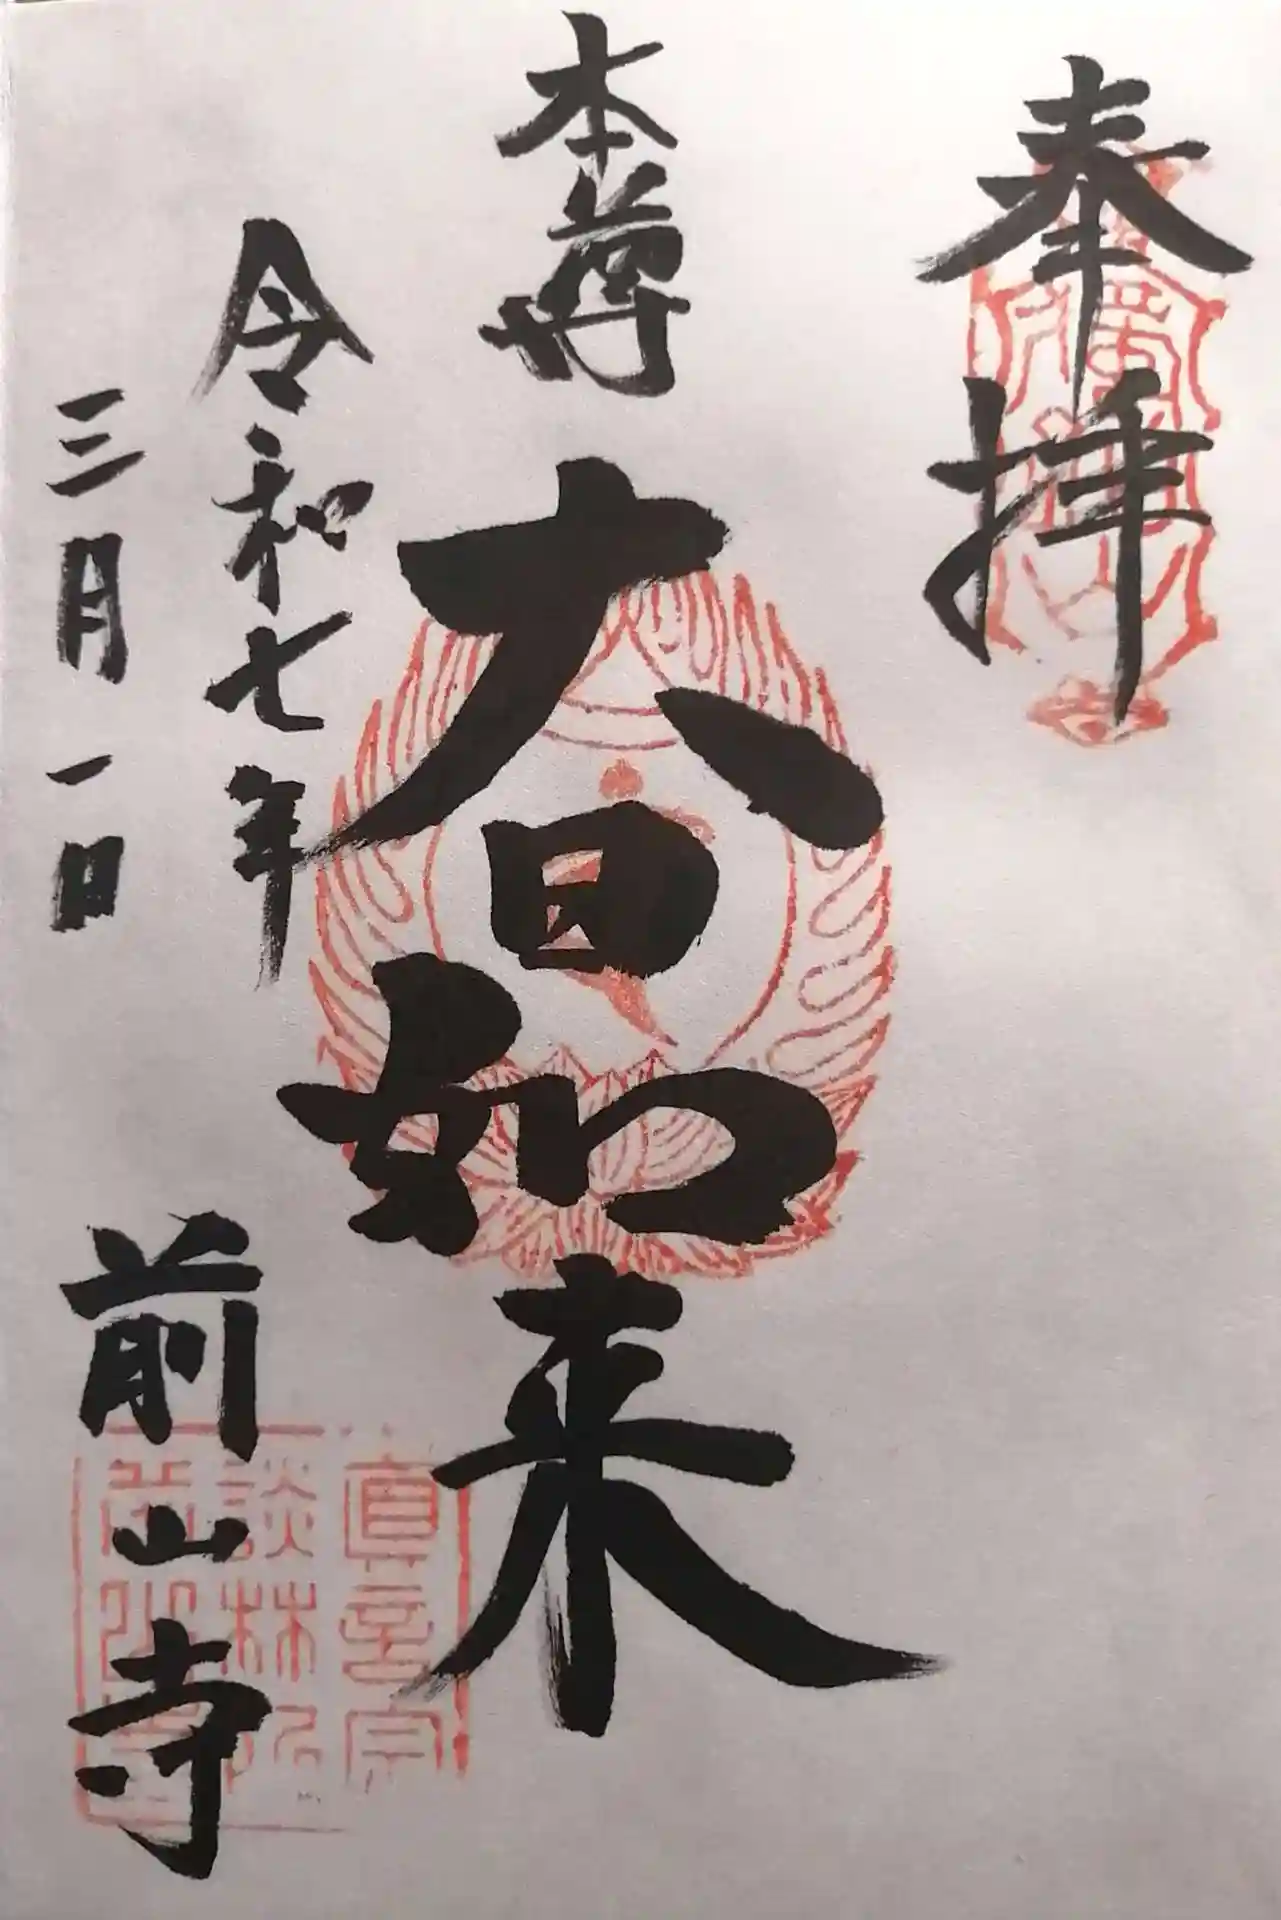 奉拝
本尊 大日如来
令和七年
三月一日
前山寺
真言宗
談林所
前山寺